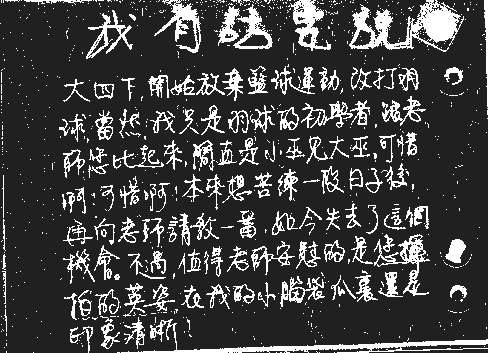 我有話要說
大四下，開始放棄籃球運動，改打羽
球，當然，我只是羽球的初學者，跟老
師您比起來，簡直是小巫見大巫，可惜
啊！可惜啊！本來想苦練一段日子後，
再向老師請教一番，如今失去了這個
機會。不過，值得老師安慰的，是您握
拍的英姿，在我的小腦袋瓜裏還是
印象清晰！